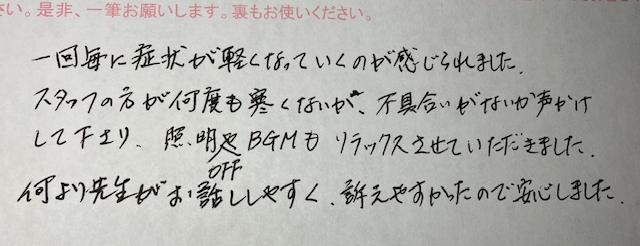 さい。是非、一筆お願いします。裏もお使いください。
一回毎に症状が軽くなっていくのが感じられました。
スタッフの方が何度も寒くないか、不具合いがないか声かけ
して下さり、照明やBGMもリラックスさせていただきました。
OFF
何より先生がお話ししやすく、訴えやすかったので安心しました。